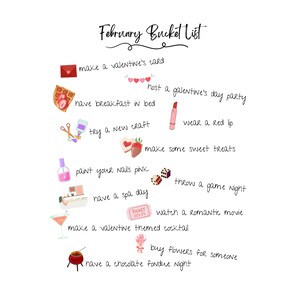 February Bucket List
make a valentine's card
host a galentine's day party
have breakfast in bed
wear a red lip
try a new craft
make some sweet treats
paint your nails pink
throw a game night
have a spa day
watch a romantic movie
make a valentine themed cocktail
buy flowers for someone
have a chocolate fondue night